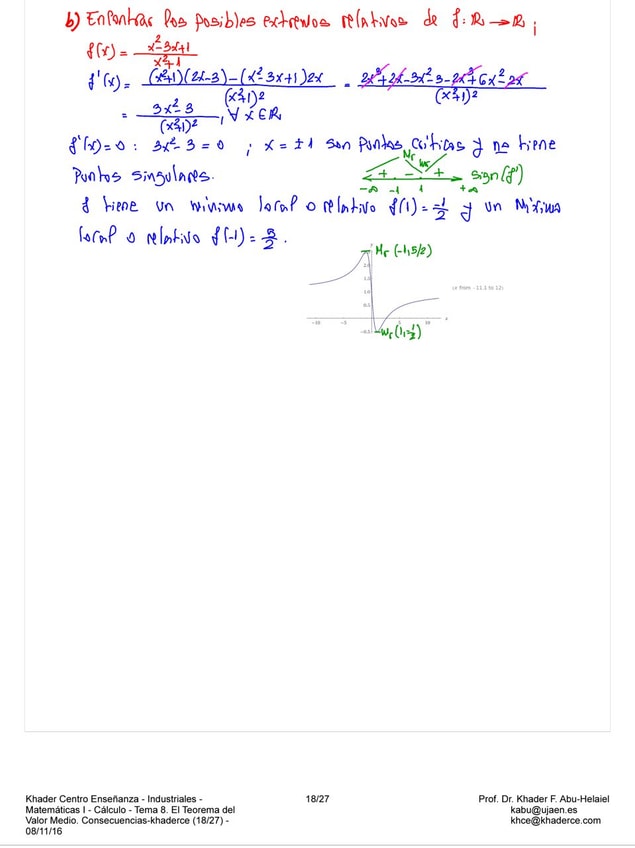 b) Encontrar los posibles extremos relativos de f: ℝ → ℝ ;
f(x) = (x²-3x+1)/(x²+1)
f'(x) = ((x²+1)(2x-3) - (x²-3x+1)2x)/(x²+1)² = (2x³+2x-3x²-3-2x³+6x²-2x)/(x²+1)²
= (3x²-3)/(x²+1)², ∀ x∈ℝ
f'(x)=0 : 3x²-3=0 ; x = ±1 son puntos críticos y no tiene
puntos singulares.
Mr mr
+ - + sign(f')
-∞ -1 1 +∞
f tiene un mínimo local o relativo f(1) = -1/2 y un Máximo
local o relativo f(-1) = 5/2.
Mr (-1, 5/2)
2.0
1.5
1.0
(x from -11.1 to 12)
0.5
-10 -5 5 10 x
-0.5 mr (1, -1/2)
Khader Centro Enseñanza - Industriales -
Matemáticas I - Cálculo - Tema 8. El Teorema del
Valor Medio. Consecuencias-khaderce (18/27) -
08/11/16
18/27
Prof. Dr. Khader F. Abu-Helaiel
kabu@ujaen.es
khce@khaderce.com